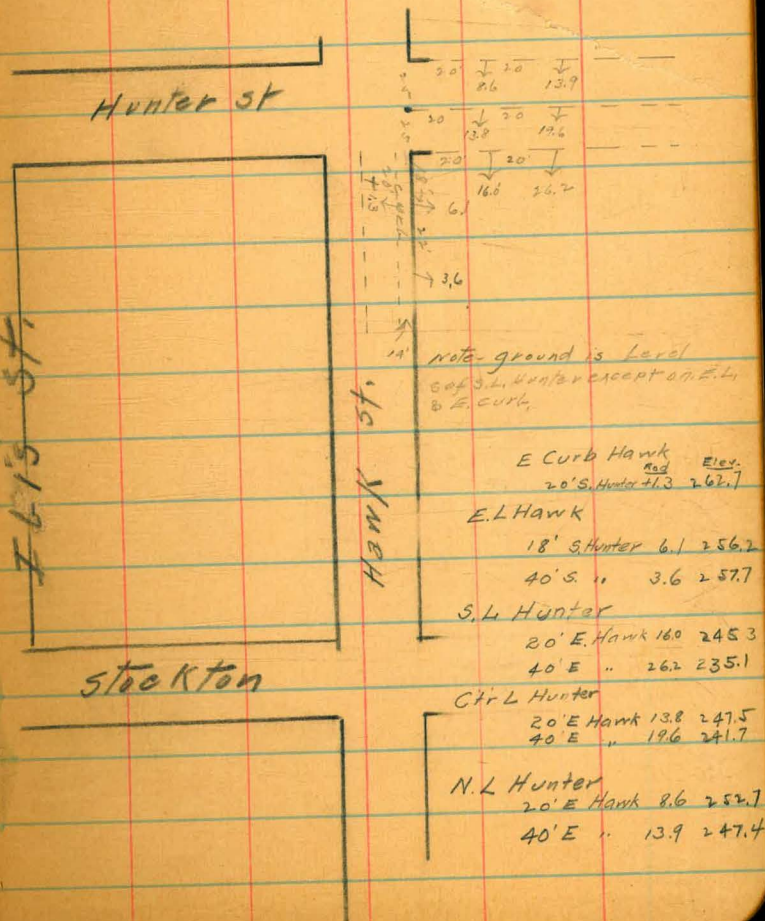 Hunter st
20' 8.6 20 13.9
25
20 13.8 20 19.6
25
20' 16.0 20' 26.2
18' 6.1
22'
3,6
+1.3
14'
Note- ground is Level
S of S.L. Hunter except on E.L.
& E. curb.
Hawk St.
Stockton
E Curb Hawk
Rod Elev.
20'S. Hunter +1.3 262.7
E.L Hawk
18' S. Hunter 6.1 256.2
40' S. " 3.6 257.7
S.L Hunter
20' E. Hawk 16.0 245.3
40' E " 26.2 235.1
Ctr L Hunter
20' E Hawk 13.8 247.5
40' E " 19.6 241.7
N.L Hunter
20' E Hawk 8.6 252.7
40' E " 13.9 247.4